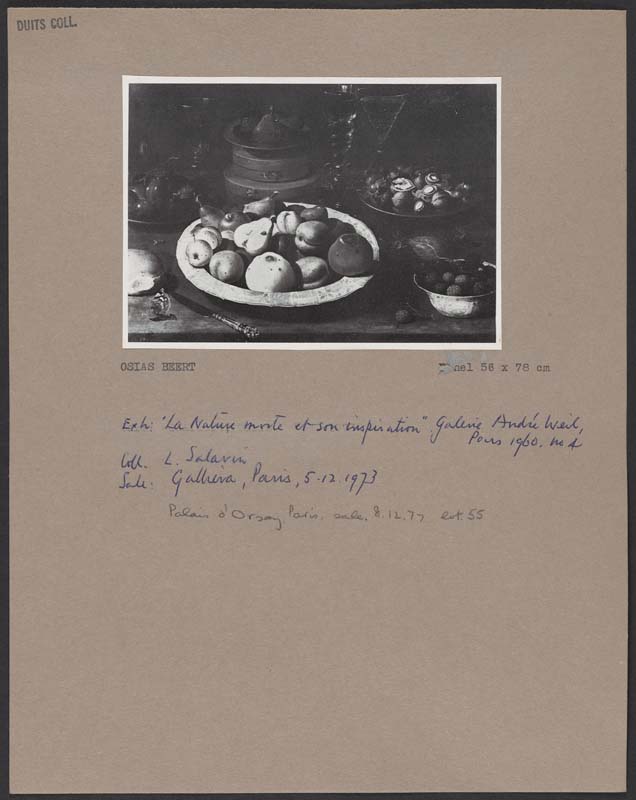 DUITS COLL.
OSIAS BEERT
Panel 56 x 78 cm
Exh: "La Nature morte et son inspiration". Galerie André Weil,
Paris 1960. no 4
Coll. L. Salavin
Sale: Galliéra, Paris, 5.12.1973
Palais d'Orsay Paris. sale. 8.12.77 lot.55